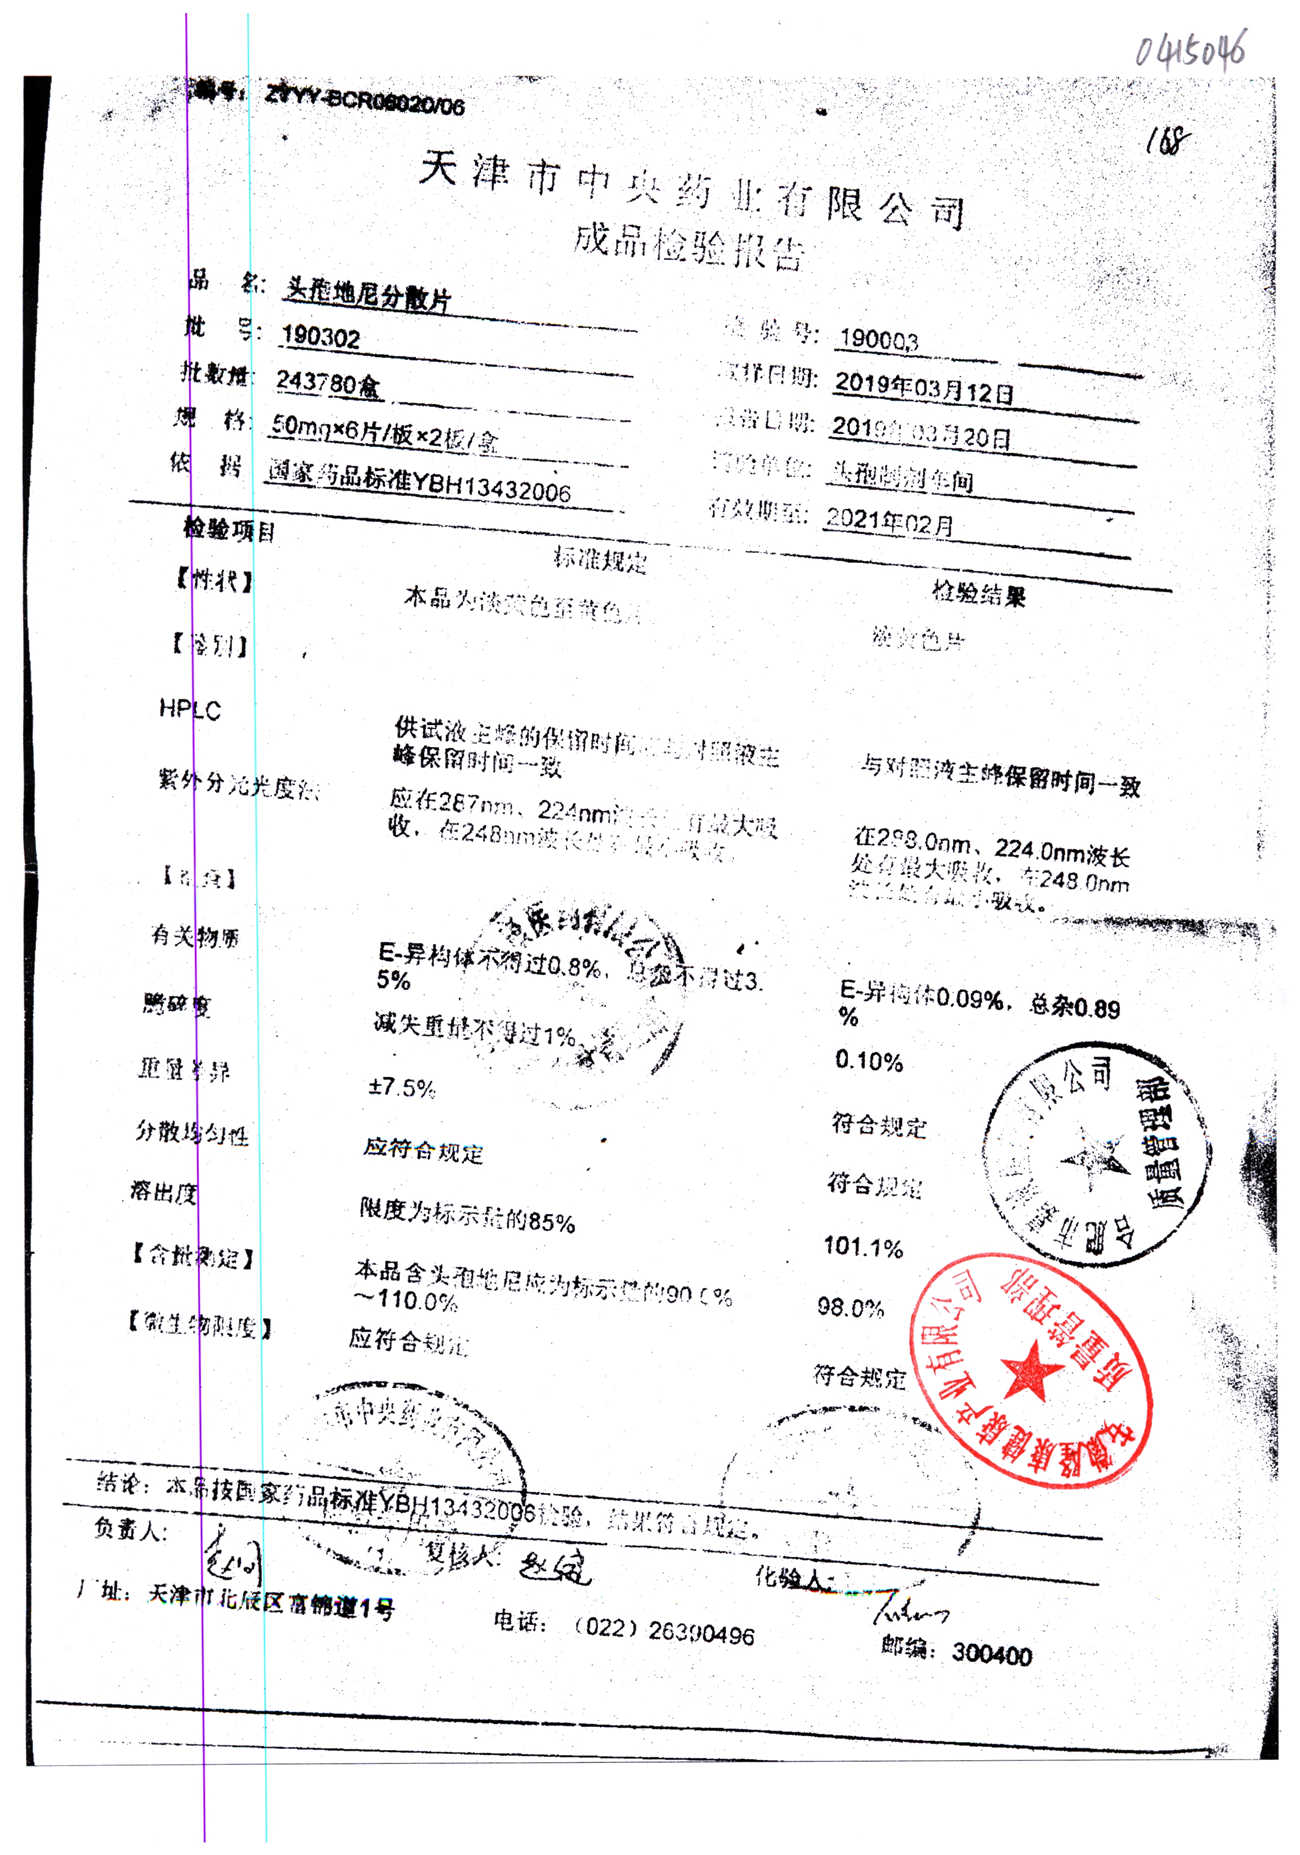 0415046
编号: ZYYY-BCR08020/06
168
天津市中央药业有限公司
成品检验报告
品 名: 头孢地尼分散片
批 号: 190302 检 验 号: 190003
批数量: 243780盒 日期: 2019年03月12日
规 格: 50mg×6片/板×2板/盒 报告日期: 2019年03月20日
依 据 国家药品标准YBH13432006 检验单位: 头孢制剂车间
有效期至: 2021年02月
检验项目 标准规定 检验结果
【性状】 本品为淡黄色至黄色片 淡黄色片
【鉴别】
HPLC 供试液主峰的保留时间应与对照液主 与对照液主峰保留时间一致
峰保留时间一致
紫外分光光度法 应在287nm、224nm波长处有最大吸 在288.0nm、224.0nm波长
收，在248nm波长处有最小吸收。 处有最大吸收，在248.0nm
波长处有最小吸收。
【检查】
有关物质 E-异构体不得过0.8%，总杂不得过3. E-异构体0.09%，总杂0.89
5% %
脆碎度 减失重量不得过1% 0.10%
重量差异 ±7.5% 符合规定
分散均匀性 应符合规定 符合规定
溶出度 限度为标示量的85% 101.1%
【含量测定】 本品含头孢地尼应为标示量的90.0% 98.0%
～110.0%
【微生物限度】 应符合规定 符合规定
公司
质量管理部
合肥市
安徽隆康健康产业有限公司
质量管理部
市中央药业有限公司
结论: 本品按国家药品标准YBH13432006检验，结果符合规定。
负责人: 复核人: 化验人:
厂址: 天津市北辰区富锦道1号 电话: （022）26390496 邮编: 300400